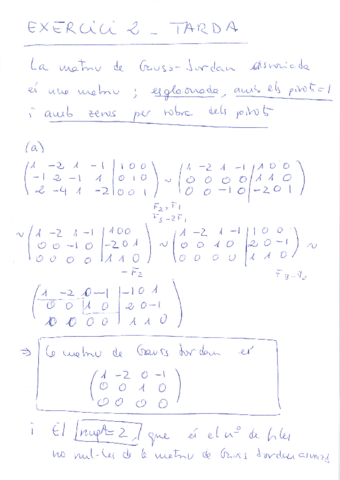 EXERCICI 2 - TARDA
La matriu de Gauss-Jordan associada
és una matriu; esglaonada, amb els pivots=1
i amb zeros per sobre dels pivots
(a)
(1 -2 1 -1 | 1 0 0) ~ (1 -2 1 -1 | 1 0 0)
(-1 2 -1 1 | 0 1 0) (0 0 0 0 | 1 1 0)
(2 -4 1 -2 | 0 0 1) (0 0 -1 0 | -2 0 1)
F2+F1
F3-2F1
~ (1 -2 1 -1 | 1 0 0) ~ (1 -2 1 -1 | 1 0 0) ~
(0 0 -1 0 | -2 0 1) (0 0 1 0 | 2 0 -1)
(0 0 0 0 | 1 1 0) (0 0 0 0 | 1 1 0)
-F2
(1 -2 0 -1 | -1 0 1)
(0 0 1 0 | 2 0 -1)
(0 0 0 0 | 1 1 0)
⇒ La matriu de Gauss Jordan és
(1 -2 0 -1)
(0 0 1 0)
(0 0 0 0)
i El rang=2, que és el nº de files
no nul·les de la matriu de Gauss Jordan